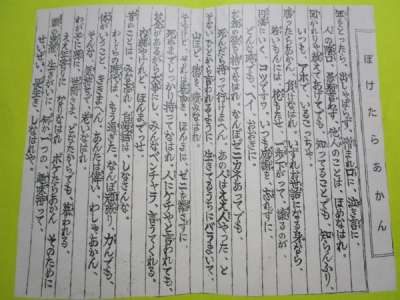 ぼけたらあかん
年をとったら、出しゃばらず、憎まれ口に、泣き言に
人の陰口、愚痴言わず、他人のことは、ほめなはれ。
聞かれりゃ教えてあげてても、知ってることでも、知らんふり、
いつも、アホで、いるこっちゃ。
勝ったらあかん、負けなはれ、いずれお世話になる身なら、
若いもんには、花もたせ、一歩さがって、譲るのが、
円満にいく、コツですワ。いつも感謝を、忘れずに、
どんな時でも、ヘイ、おおきに。
なんぼゼニカネあってても、
死んだら持って行けまへん。あの人はええ人やった、と
そないに人から言われるよう、生きてるうちにバラまいて、
山ほど徳を、積みなはれ。
そやけどそれは表向き、ゼニを離さずに、
死ぬまでしっかり持ってなはれ。人にケチやと言われても、
お金があるから大事にし、みんなベンチャラ、言うてくれる。
内緒やけれど、ほんまだっせ。
昔のことは、みな忘れ、自慢話は、しなさんな。
わしらの時代は、もう過ぎた、なんぼ頑張り、がんでも、
体がいうこと、ききまへん。あんたは偉い、わしゃあかん、
そんな気持で、おりなはれ。
わが子に孫に、世間さま、どなたからでも、慕われる、
ええ年寄りに、なりなはれ。ボケたらあかん、そのために
頭の洗濯、生きがいに、何か一つの、趣味持って、
せいぜい、長生き、しなはれや。